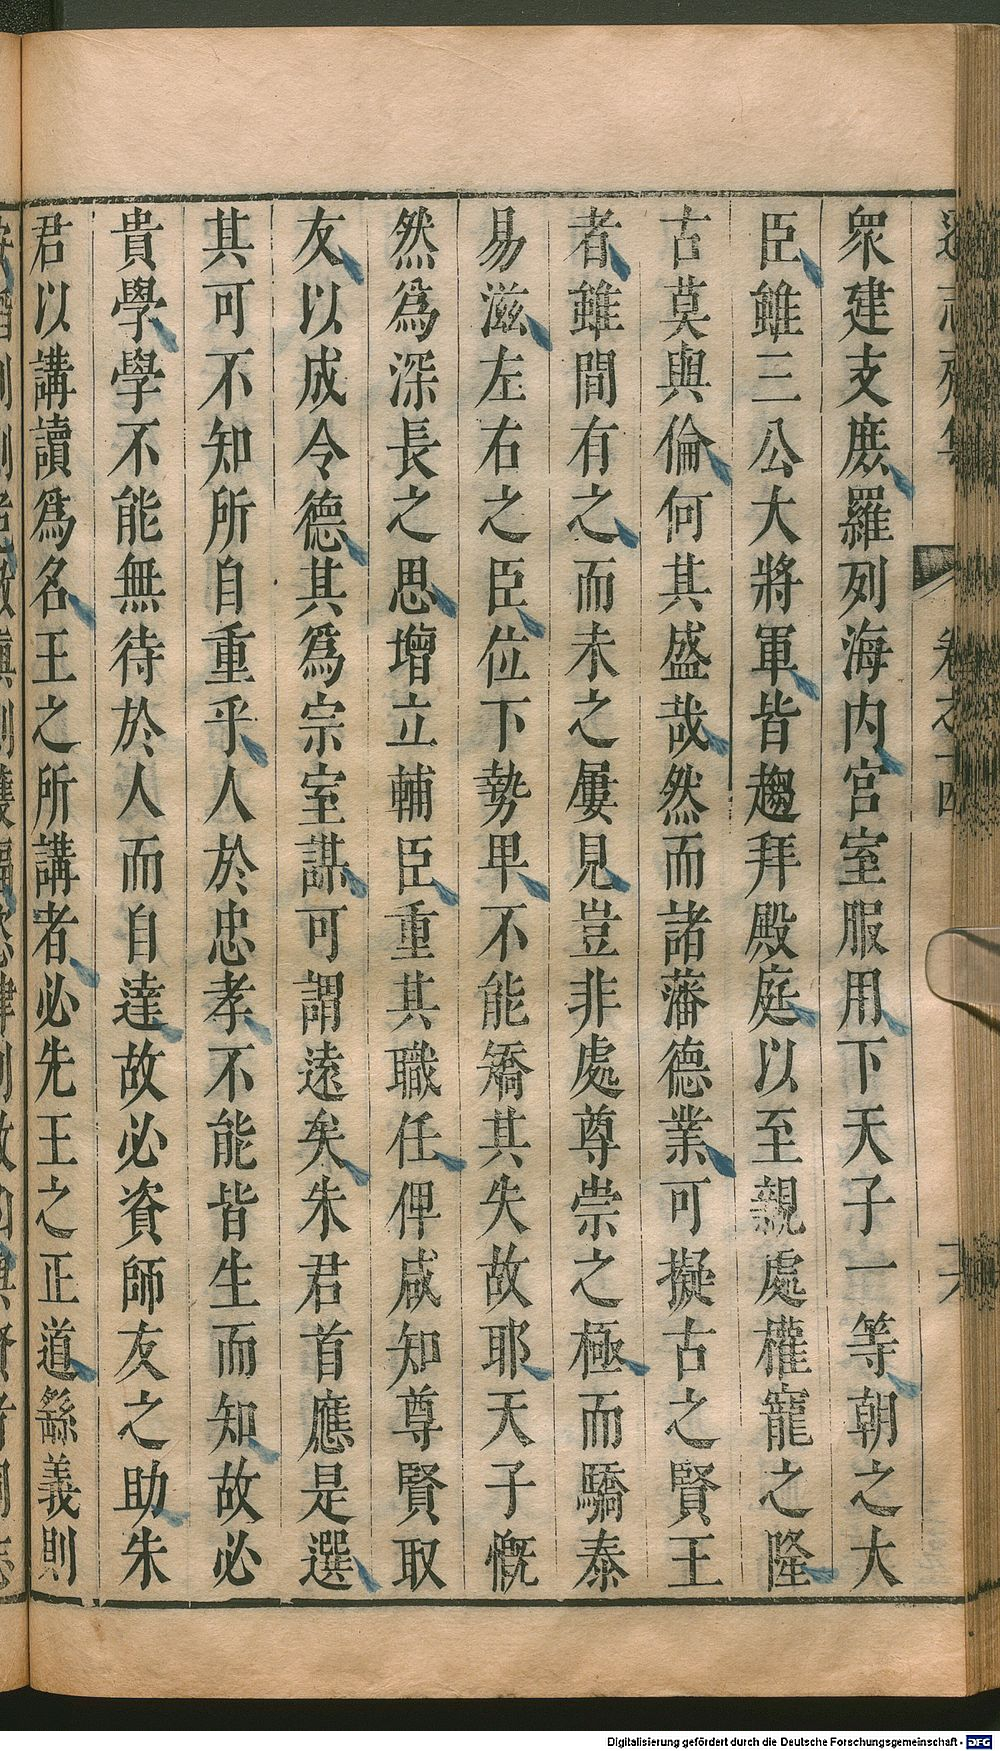 衆建支庶羅列海内宮室服用下天子一等朝之大
臣雖三公大將軍皆趨拜殿庭以至親處權寵之隆
古莫與倫何其盛哉然而諸藩德業可擬古之賢王
者雖間有之而未之屢見豈非處尊崇之極而驕泰
易滋左右之臣位下勢卑不能矯其失故耶天子慨
然爲深長之思增立輔臣重其職任俾咸知尊賢取
友以成令德其爲宗室謀可謂遠矣朱君首應是選
其可不知所自重乎人於忠孝不能皆生而知故必
貴學學不能無待於人而自達故必資師友之助朱
君以講讀爲名王之所講者必先王之正道繇義則
Digitalisierung gefördert durch die Deutsche Forschungsgemeinschaft - DFG